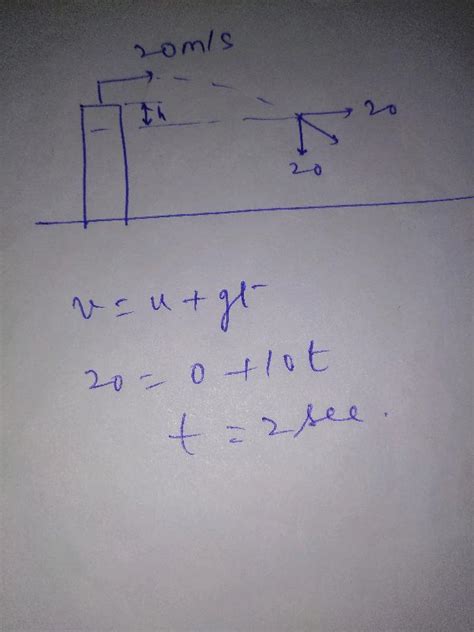 20m/s
h
20
20
v = u + gt
20 = 0 + 10t
t = 2 sec.